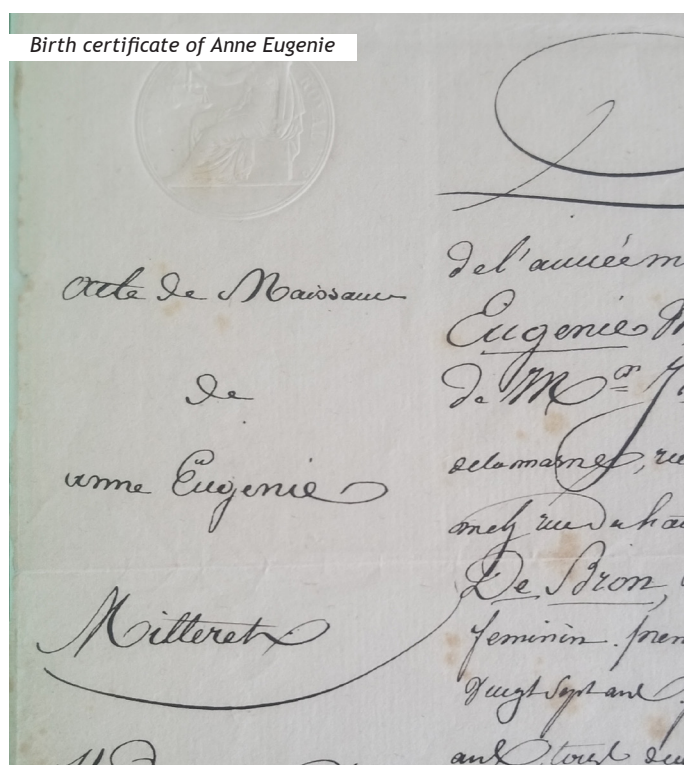 Birth certificate of Anne Eugenie
acte de Naissance
de
anne Eugenie
Milleret
de l'année m
Eugenie M
de Mr J
de la marne, rue
metz rue du ha
De Bron,
feminin. prem
Vingt Sept ans
ans tous deu